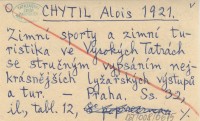 CHYTIL Alois 1921.
Zimní sporty a zimní tu-
ristika ve Vysokých Tatrách
se stručným vypsáním nej-
krásnějších lyžařských výstupů
a tur. — Praha. Ss. 32,
il., tabl. 12,